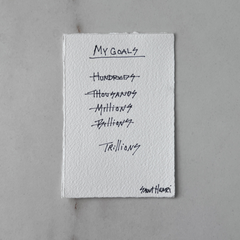 MY GOALS
HUNDREDS
THOUSANDS
MILLIONS
BILLIONS
TRILLIONS